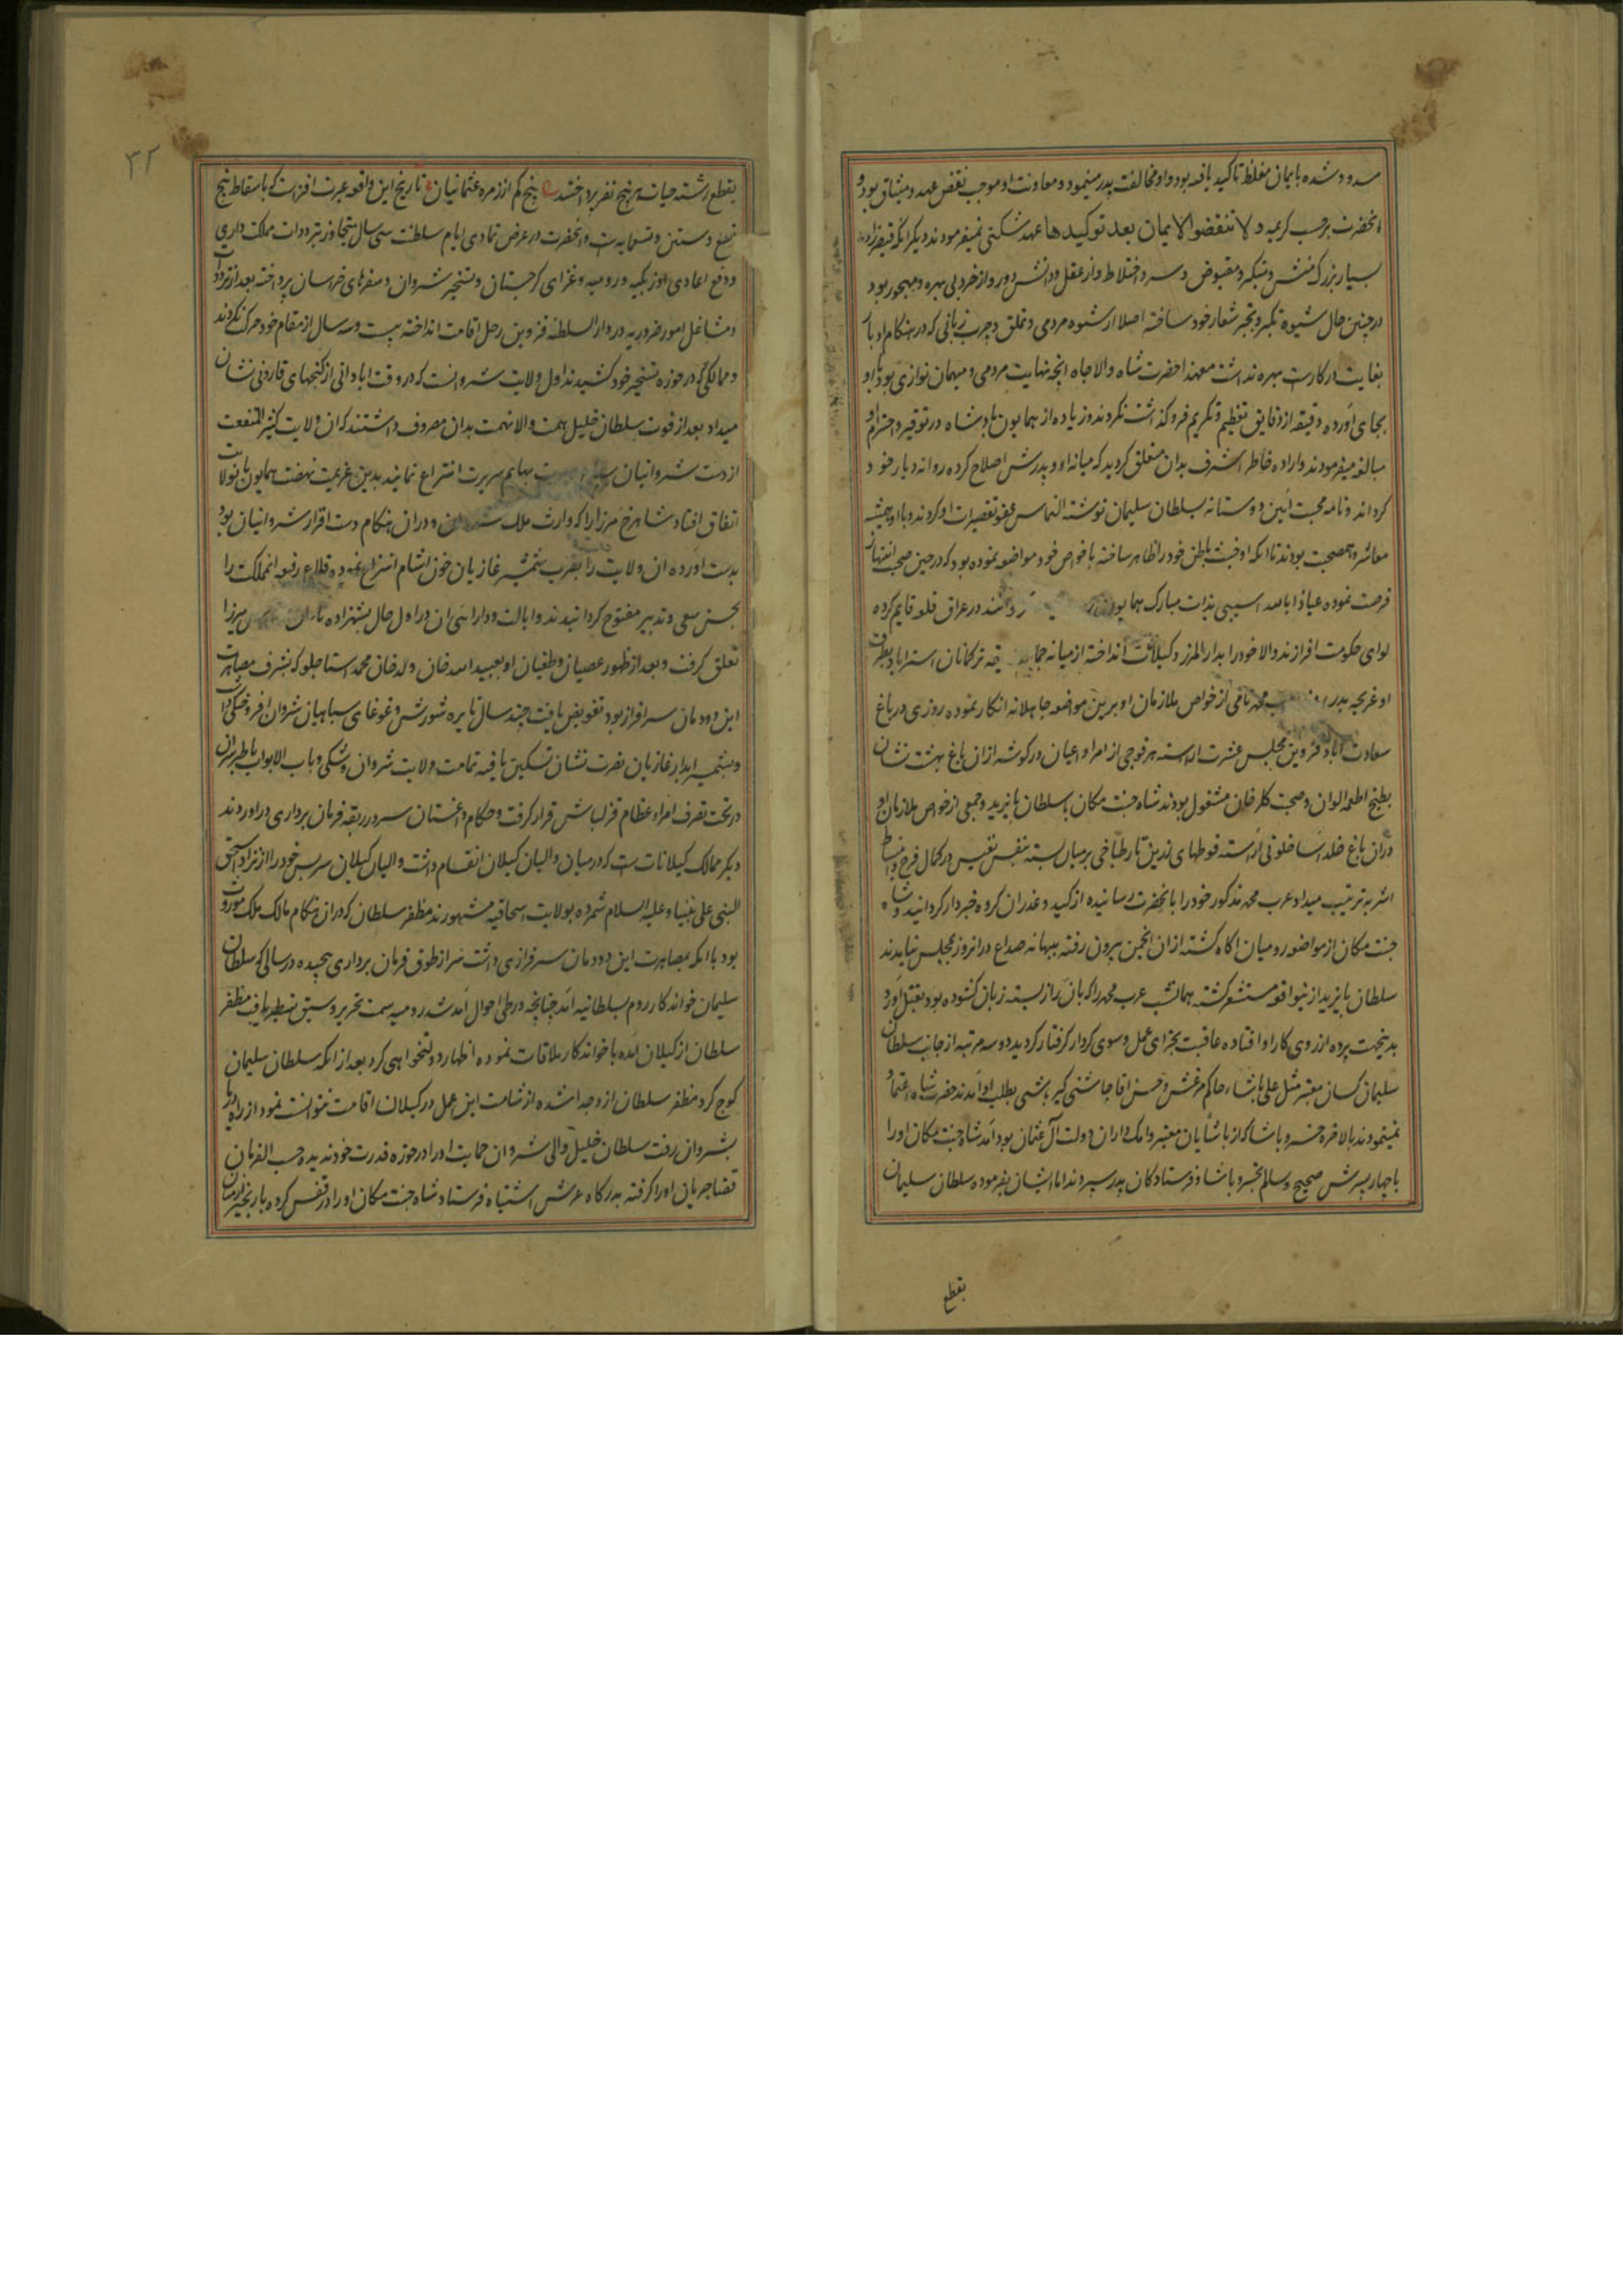 مسدود شده بایمان مغلظ تاکید یافته بود و او مخالفت پدر مینمود و معاونت او موجب نقض عهد و میثاق بود و
انحضرت بر حسب کریمه و لا تنقضوا الایمان بعد توکیدها عهد شکنی نمیفرمودند دیگر انکه قیصرزاده
بسیار بزرک منش و متکبر و مقبوض و سرد اختلاط و از عقل و دانش دور و از خرد بی بهره و مهجور بود
در چنین حال شیوه تکبر و تجبر شعار خود ساخته اصلا از شیوه مردمی و تملق و چرب زبانی که در هنکام ادبار
بغایت در کارست بهره نداشت معهذا حضرت شاه والاجاه انچه نهایت مردمی و میهمان نوازی بود با او
بجای آورده دقیقه از دقایق تعظیم و تکریم فروکذاشت نکردند و زیاده از همایون پادشاه در توقیر و احترام او
مبالغه میفرمودند و اراده خاطر اشرف بدان متعلق کردید که میانه او و پدرش اصلاح کرده روانه دیار خود
کرداند و نامه محبت آیین دوستانه بسلطان سلیمان نوشته التماس عفو تقصیرات او کردند و با او همیشه
معاشر و همصحبت بودند تا انکه او خبث باطن خود را ظاهر ساخته با خواص خود مواضعه نموده بود که در حین صحبت انتهاز
فرصت نموده عیاذا بالله اسیبی بذات مبارک همایون در عراق قلعه قایم کرده
لوای حکومت افرازند والا خود را بدارالمرز و کیلانات انداخته از میانه ترکمانان استراباد بطرف
اوغریجه بدر محمد نامی از خواص ملازمان او برین مواضعه جاهلانه انکار نموده روزی در باغ
سعادت آباد قزوین مجلس عشرت اراسته هر فوجی از امرا و اعیان در کوشه از ان باغ بهشت نشان
بطبخ اطعمه الوان و صحبت کلرخان مشغول بودند شاه جنت مکان با سلطان بایزید و جمعی از خواص ملازمان او
در ان باغ خلد اسا خلوتی آراسته فوطهای زرین تار طباخی بر میان بسته بنفس نفیس در کمال فرح و انبساط
اش بترتیب میداد عرب محمد مذکور خود را بانحضرت رسانیده از کید و غدر ان کروه خبردار کردانید و شاه
جنت مکان از مواضعه رومیان اکاه کشته از ان انجمن بیرون رفته ببهانه صداع در انروز بمجلس نیامدند
سلطان بایزید ازینواقعه مستشعر کشته همانشب عرب محمد را که بان راز بسته زبان کشوده بود بقتل آورد
بدینجهت پرده از روی کار او افتاده عاقبت بجزای عمل و سوی کردار کرفتار کردید دو سه مرتبه از جانب سلطان
سلیمان کسان معتبر مثل علی پاشاء حاکم مرعش و حسن اقا چاشنی کیر باشی بطلب او آمدند حضرت شاه اعتماد
نمینمودند بالاخره خسرو پاشا که از پاشایان معتبر و امکداران دولت آل عثمان بود آمد شاه جنت مکان او را
با چهار پسرش صحیح و سالم بخسرو پاشا و فرستادکان پدر سپردند اما ایشان بفرموده سلطان سلیمان
بقطع
۳۲
بقطع رشته حیات هر پنج نفر پرداختند پنج کم از زمره عثمانیان تاریخ این واقعه عبرت افزاست که باسقاط پنج
تسع و ستین و تسعمایه است و انحضرت در عرض تمادی ایام سلطنت سی سال متجاوز بترددات مملکت داری
و دفع اعادی اوزبکیه و رومیه و غزای کرجستان و تسخیر شروان و سفرهای خراسان پرداخته بعد از ترددات
و مشاغل امور ضروریه در دار السلطنه قزوین رحل اقامت انداخته بیست و سه سال از مقام خود حرکت نکردند
و ممالکی که در حوزه تسخیر خود کشیدند اول ولایت شروانست که در وقت ابادانی از کنجهای قارونی نشان
میداد بعد از فوت سلطان خلیل همت والا نهمت بدان مصروف داشتند که ان ولایت کثیر المنفعت
از دست شروانیان بهایم سیرت انتزاع نمایند بدین عزیمت نهضت همایون بانولایت
اتفاق افتاد شاهرخ میرزا را که وارث ملک و در ان هنکام دست اقرار شروانیان بود
بدست آورده ان ولایت را بضرب شمشیر غازیان خون اشام انتزاع نموده قلاع رفیعه انمملکت را
بحسن سعی و تدبیر مفتوح کردانیدند و ایالت و دارایی ان در اول حال بشهزاده میرزا
تعلق کرفت و بعد از ظهور عصیان و طغیان او بعبدالله خان ولد خان محمد استاجلو که بشرف مصاهرت
این دودمان سرافراز بود تفویض یافت چند سال نایره شورش و غوغای سپاهیان شروان افروختکی داشت
و بشمشیر ابدار غازیان نصرت نشان تسکین یافته تمامت ولایت شروان و شکی و باب الابواب باطبرسران
در تحت تصرف امراء عظام قزلباش قرار کرفت و حکام داغستان سر در ربقه فرمان برداری در اوردند
دیکر ممالک کیلانات است که در میان والیان کیلان انقسام داشت والیان کیلان سر بسر خود را از نژاد اسحق
النبی علی نبینا و علیه السلام شمرده بولایت اسحاقیه مشهورند مظفر سلطان که در ان هنکام مالک ملک موروث
بود با انکه بمصاهرت این دودمان سرفرازی داشت سر از طوق فرمان برداری پیچیده در سالی که سلطان
سلیمان خواندکار روم بسلطانیه آمد چنانچه در طی احوال آمد شد رومیه سمت تحریر و سبق تسطیر یافت مظفر
سلطان از کیلان آمده با خواندکار ملاقات نموده اظهار دولتخواهی کرد بعد از انکه سلطان سلیمان
کوچ کرد مظفر سلطان از وجدا شده از شامت این عمل در کیلان اقامت نتوانست نمود از راه دریا
بشروان رفت سلطان خلیل والی شروان حمایت او را در حوزه قدرت خود ندیده حسب الفرمان
قضا جریان او را کرفته بدرکاه عرش اشتباه فرستاد شاه جنت مکان او را در قفس کرده